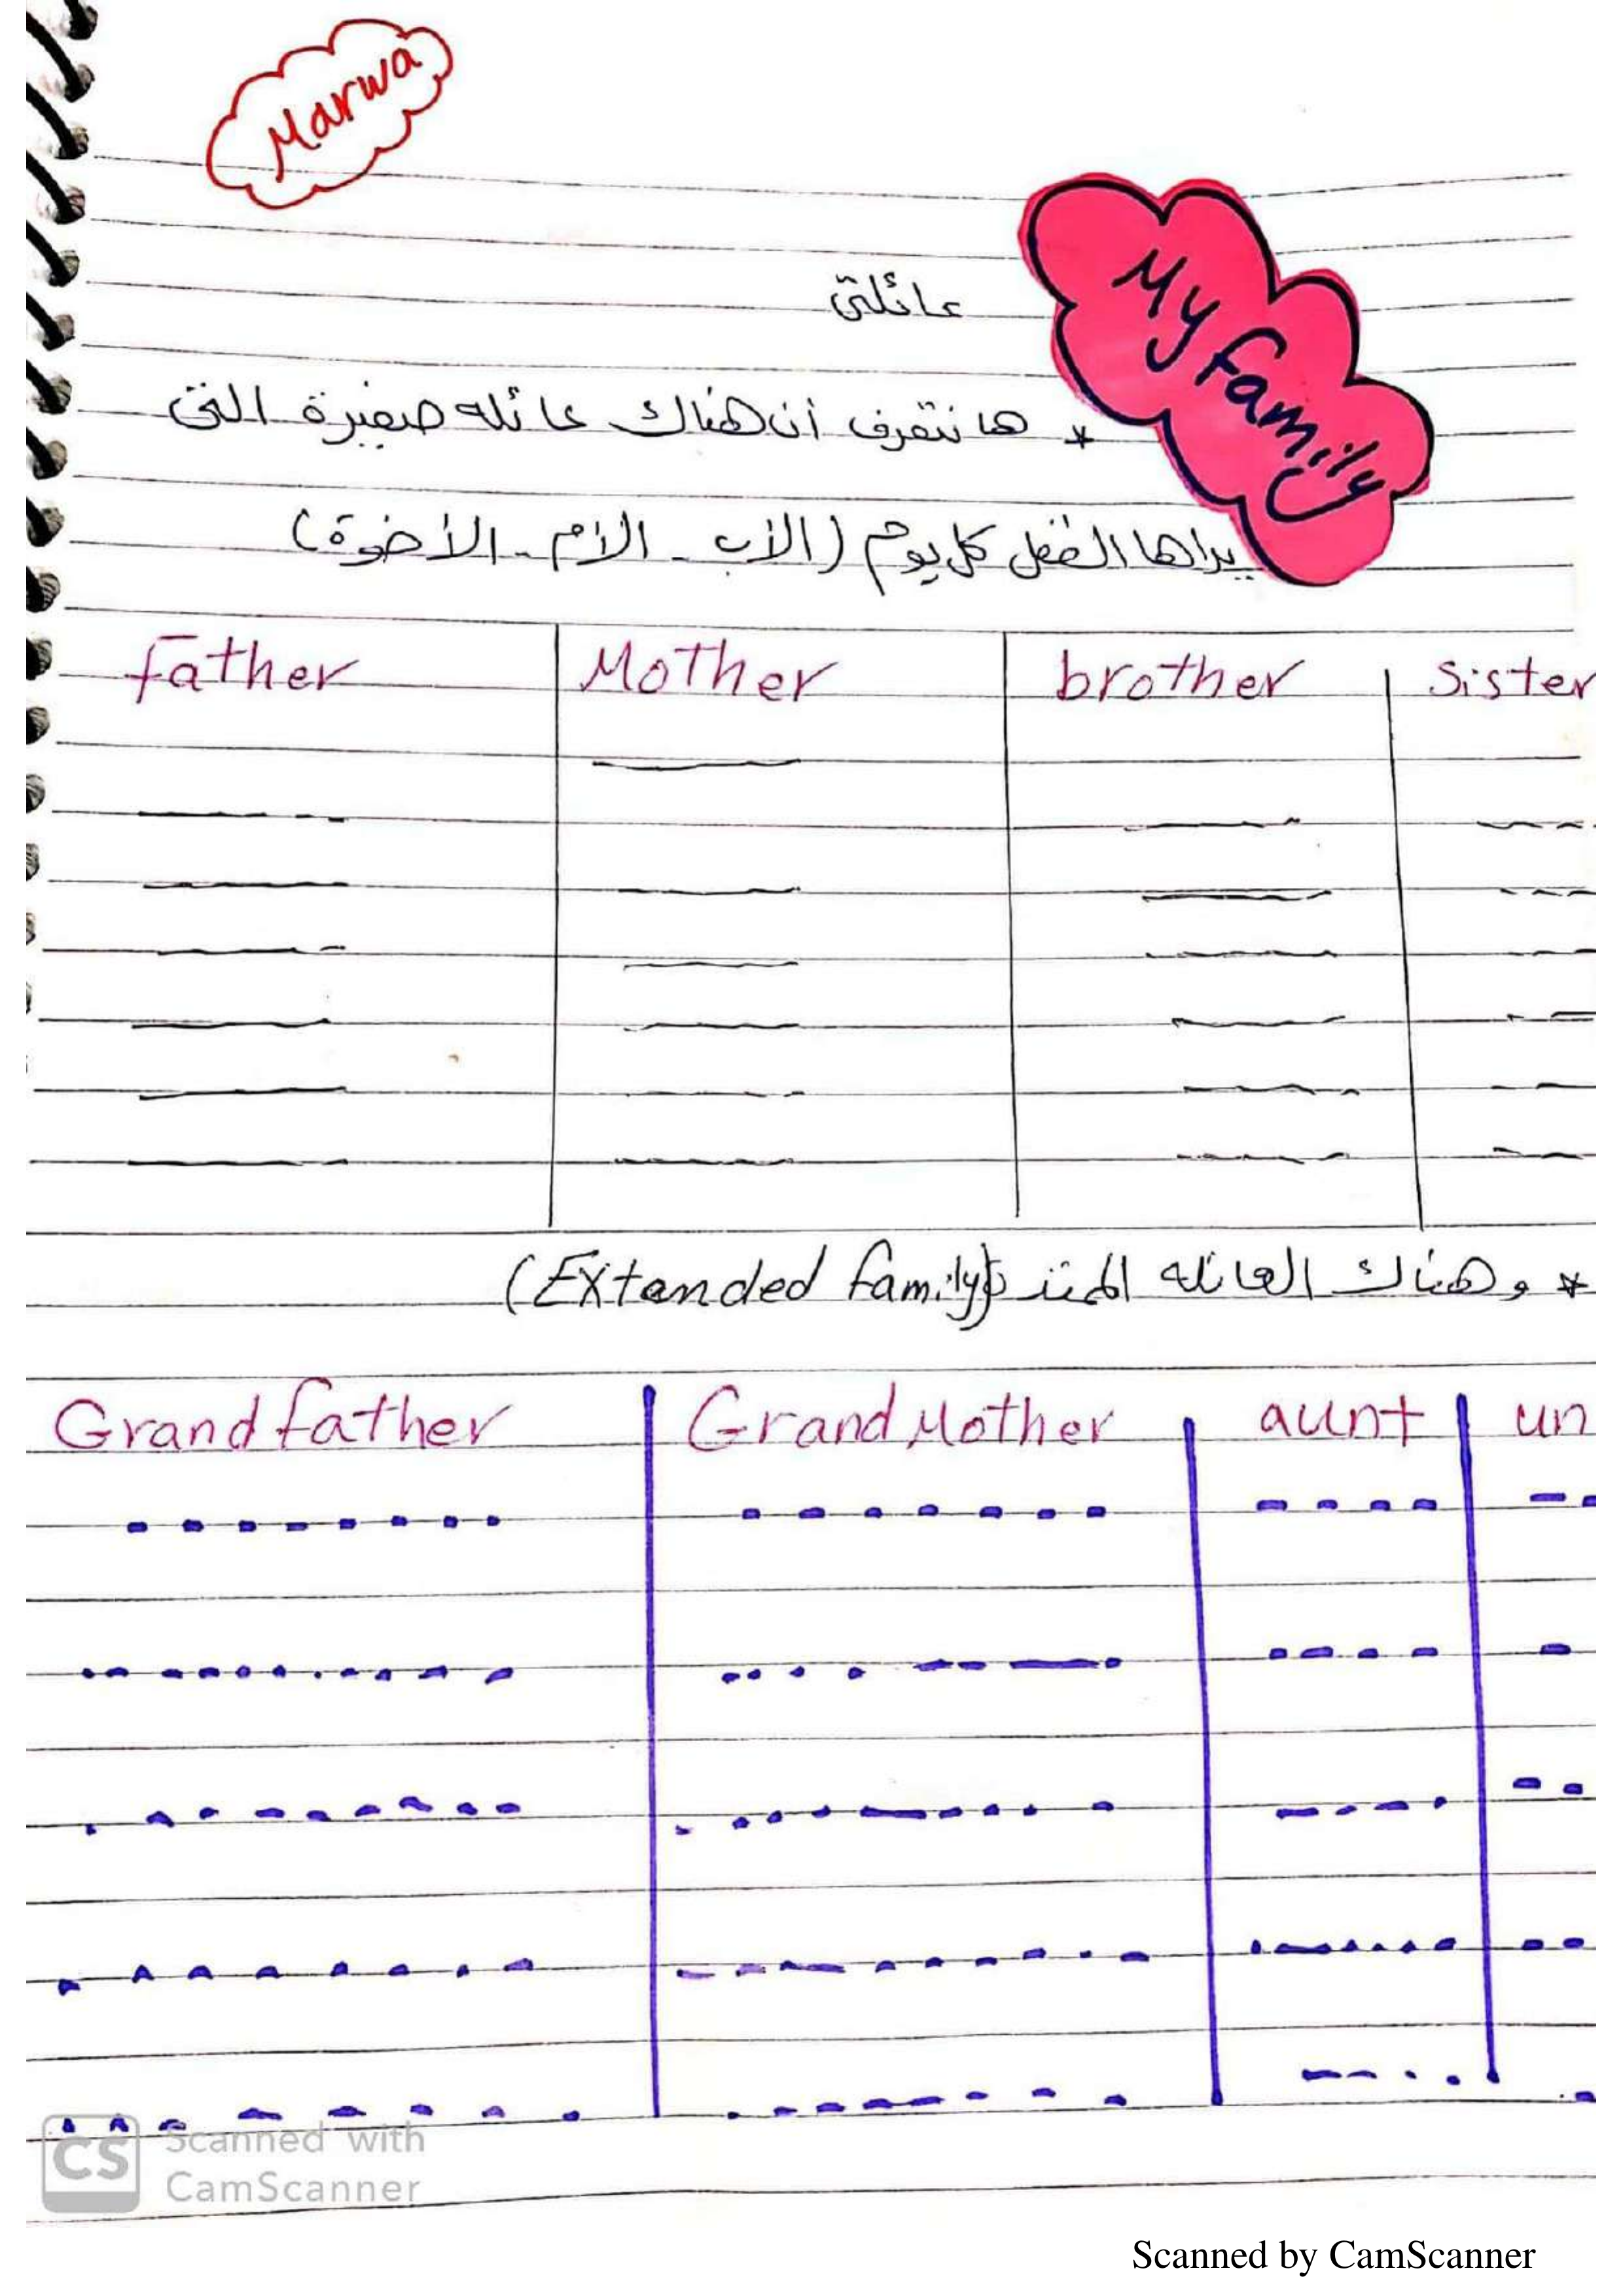 Marwa
My family
عائلتى
* هانتعرف أن هناك عائله صغيرة التى
يراها الطفل كل يوم (الأب - الأم - الأخوة)
father Mother brother Sister
* وهناك العائله الممتدة (Extended family)
Grandfather GrandMother aunt un
CS Scanned with
CamScanner
Scanned by CamScanner